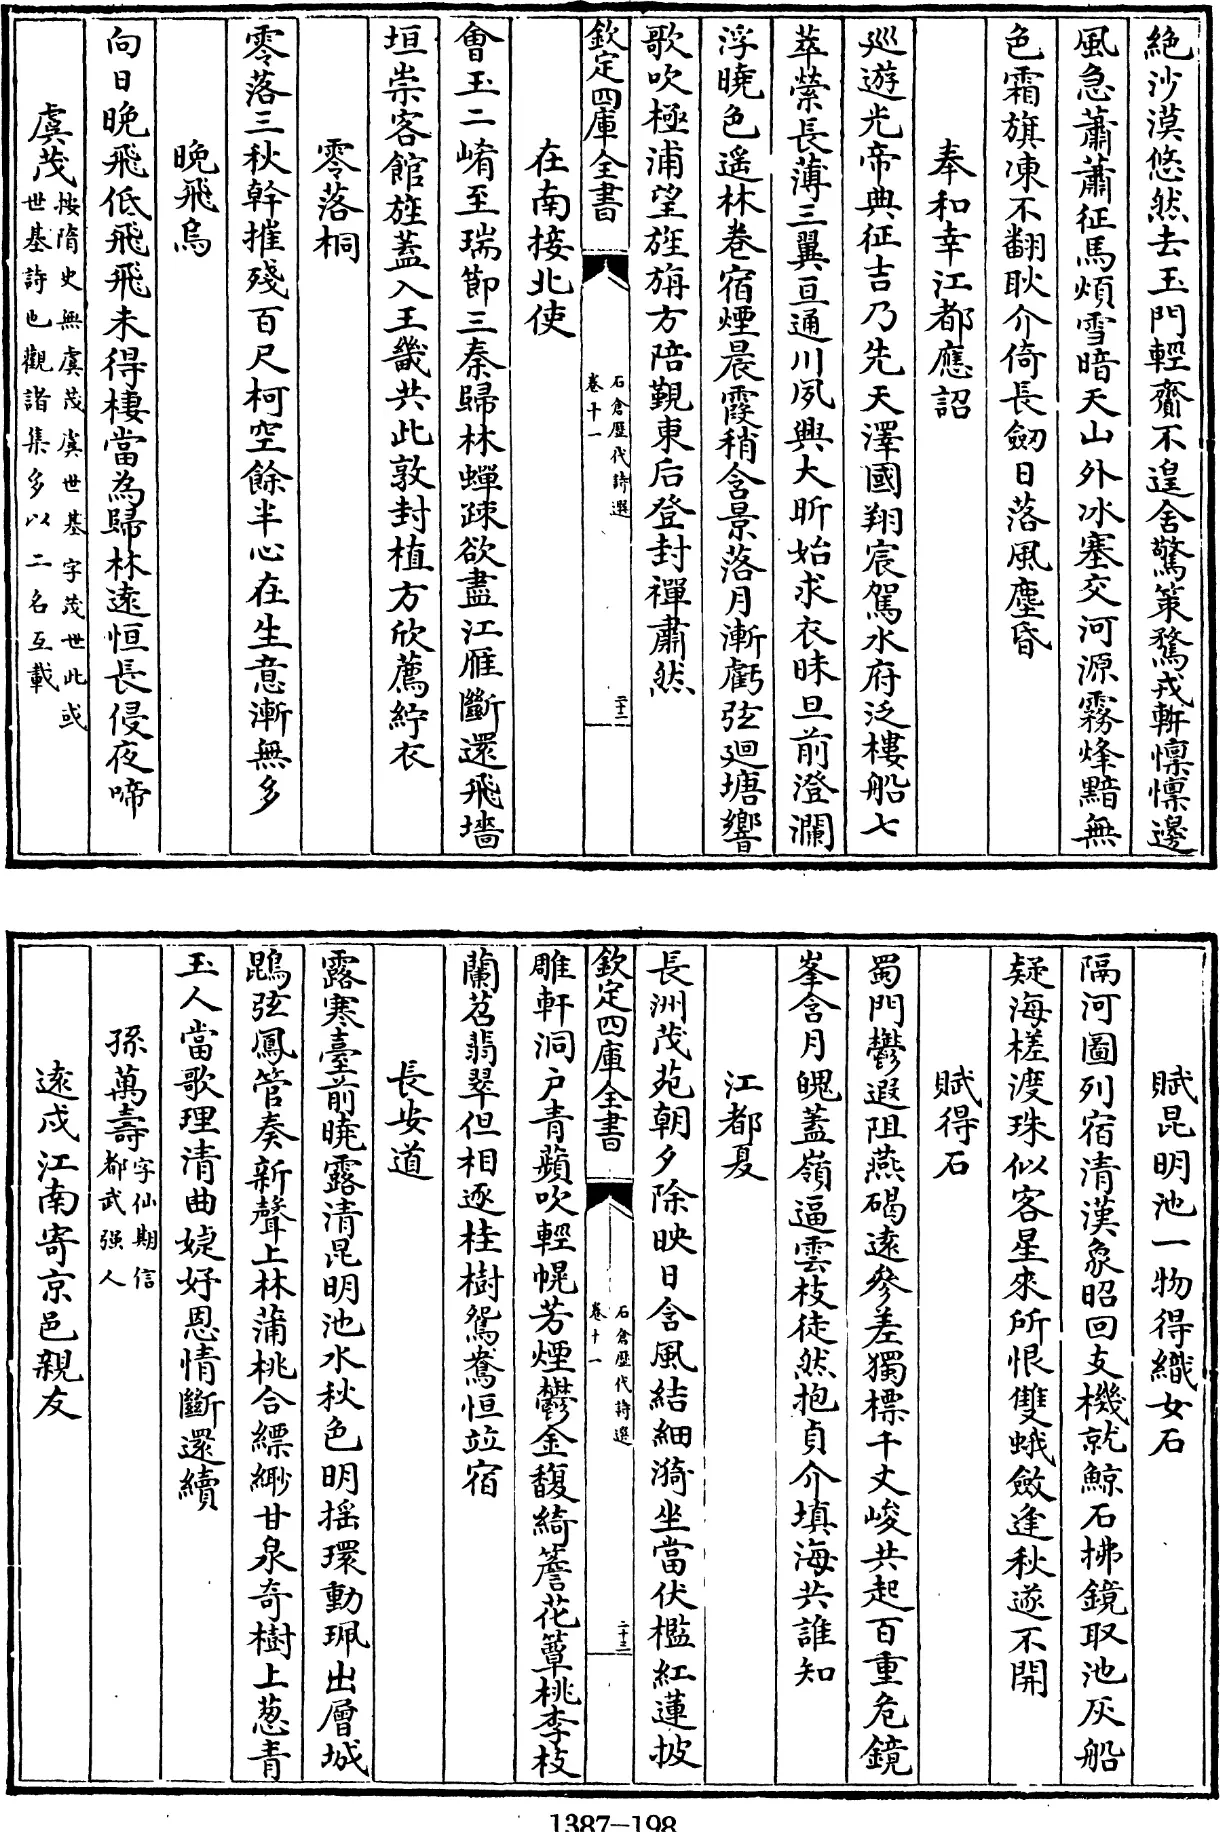 絶沙漠悠然去玉門輕齎不遑舍驚策騖戎軒懍懍邊
風急蕭蕭征馬煩雪暗天山外冰塞交河源霧烽黯無
色霜旗凍不翻耿介倚長劒日落風塵昏
奉和幸江都應詔
巡遊光帝典征吉乃先天澤國翔宸駕水府泛樓船七
萃縈長薄三翼亘通川夙興大昕始求衣昧旦前澄瀾
浮曉色遥林卷宿煙晨霞稍含景落月漸虧弦廻塘響
歌吹極浦望旌旃方陪觐東后登封禪肅然
欽定四庫全書
石倉歷代詩選
卷十一
二十二
在南接北使
會玉二崤至瑞節三秦歸林蟬疎欲盡江雁斷還飛墻
垣崇客館旌蓋入王畿共此敦封植方欣薦紵衣
零落桐
零落三秋幹摧殘百尺柯空餘半心在生意漸無多
晩飛烏
向日晩飛低飛飛未得棲當為歸林遠恒長侵夜啼
虞茂按隋史無虞茂虞世基字茂世此或
世基詩也觀諸集多以二名互載
賦昆明池一物得織女石
隔河圖列宿清漢象昭回支機就鯨石拂鏡取池灰船
疑海槎渡珠似客星來所恨雙蛾斂逢秋遂不開
賦得石
蜀門鬱遐阻燕碣遠參差獨標千丈峻共起百重危鏡
峯含月魄蓋嶺逼雲枝徒然抱貞介填海共誰知
江都夏
長洲茂苑朝夕除映日含風結細漪坐當伏檻紅蓮披
欽定四庫全書
石倉歷代詩選
卷十一
二十三
雕軒洞户青蘋吹輕幌芳煙鬱金馥綺簷花簟桃李枝
蘭苕翡翠但相逐桂樹鴛鴦恒竝宿
長安道
露寒臺前曉露清昆明池水秋色明揺環動珮出層城
鵾弦鳳管奏新聲上林蒲桃合縹緲甘泉奇樹上葱青
玉人當歌理清曲婕妤恩情斷還續
孫萬壽字仙期信
都武强人
遠戍江南寄京邑親友
1387—198